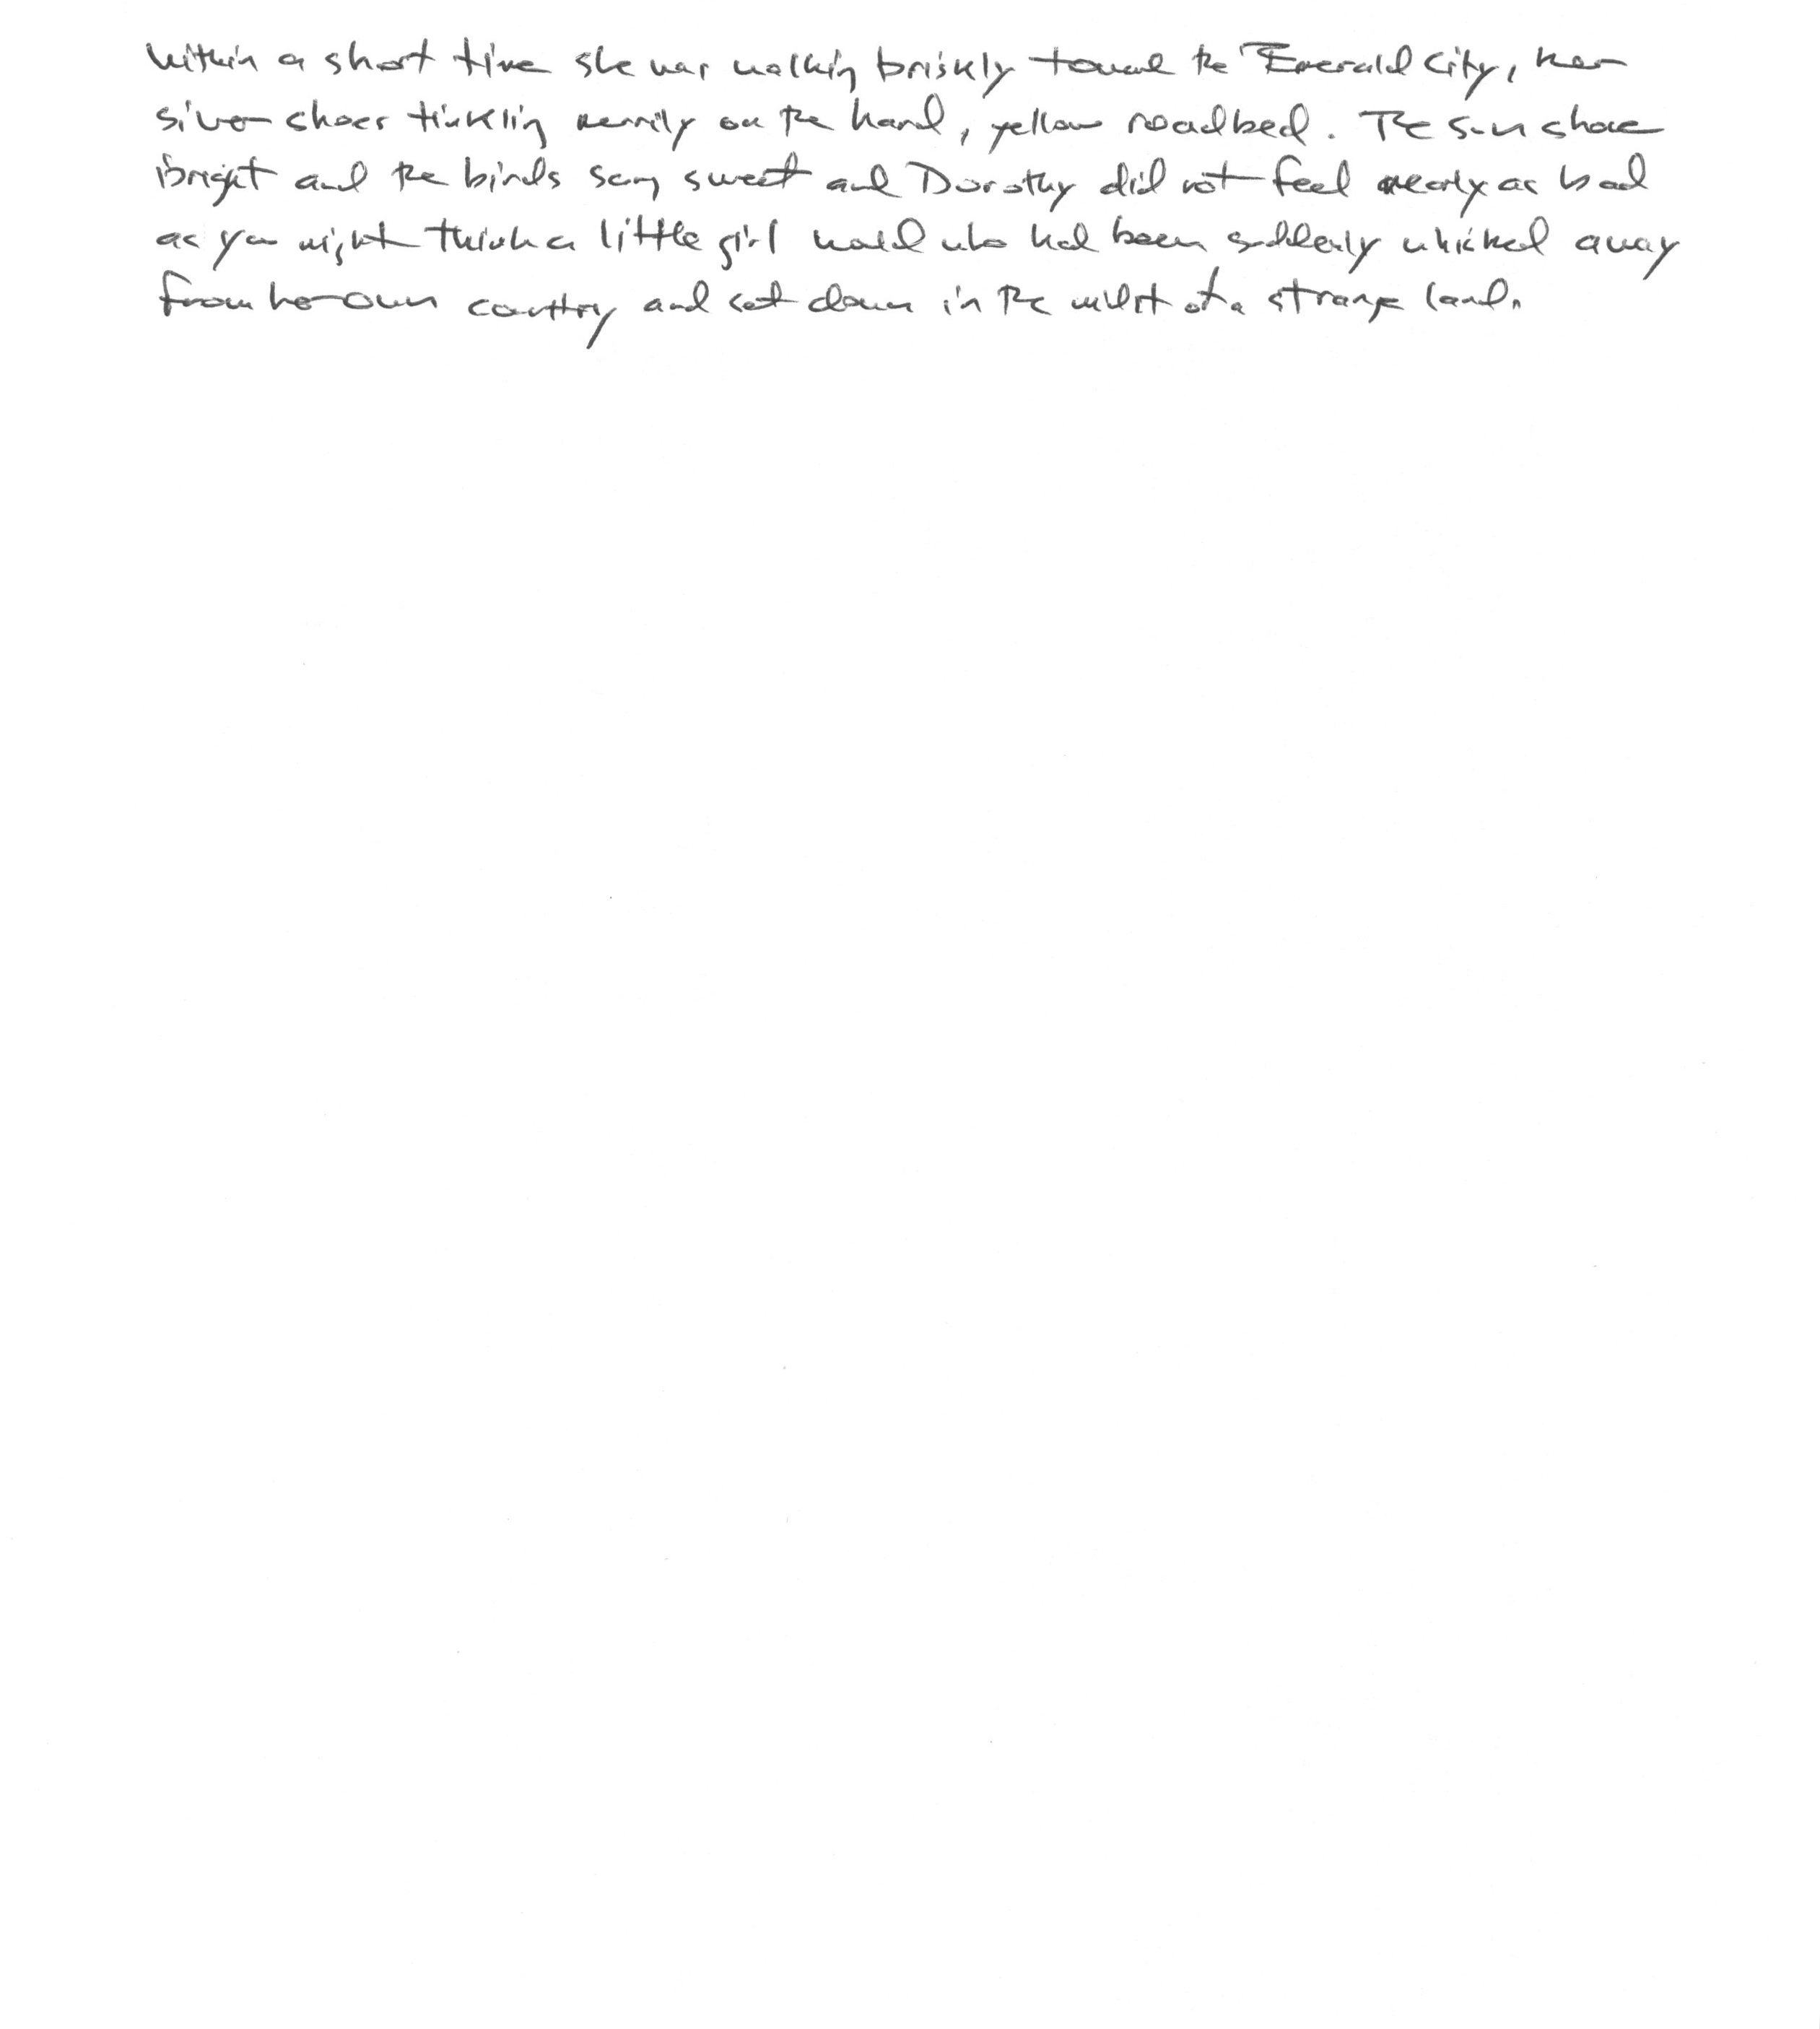 Within a short time she was walking briskly toward the Emerald City, her
silver shoes tinkling merrily on the hard, yellow roadbed. The sun shone
bright and the birds sang sweet and Dorothy did not feel nearly as bad
as you might think a little girl would who had been suddenly whisked away
from her own country and set down in the midst of a strange land.